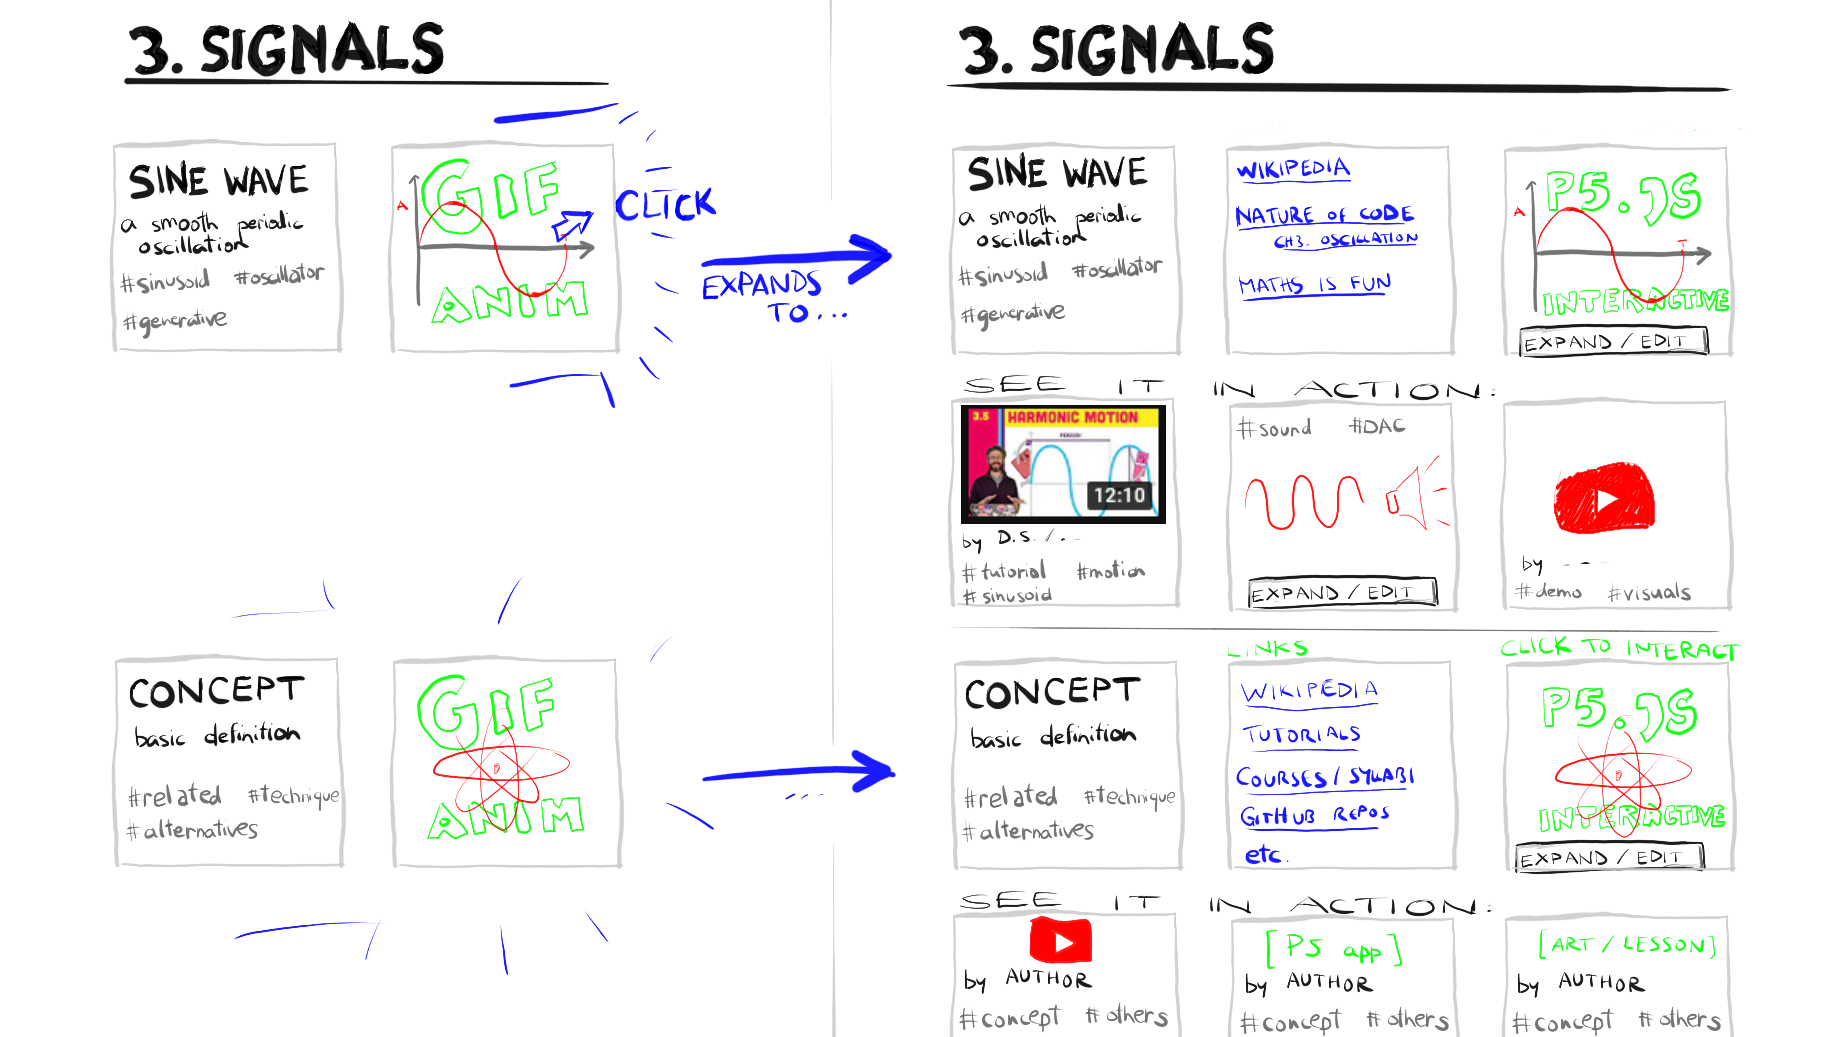 3. SIGNALS
SINE WAVE
a smooth periodic
oscillation
#sinusoid #oscillator
#generative
GIF
A
T
ANIM
CLICK
EXPANDS
TO...
CONCEPT
basic definition
#related #technique
#alternatives
GIF
ANIM
...
3. SIGNALS
SINE WAVE
a smooth periodic
oscillation
#sinusoid #oscillator
#generative
WIKIPEDIA
NATURE OF CODE
CH3. OSCILLATION
MATHS IS FUN
P5.JS
A
T
INTERACTIVE
EXPAND / EDIT
SEE IT IN ACTION:
3.5 HARMONIC MOTION
PERIOD
12:10
by D.S./...
#tutorial #motion
#sinusoid
#sound #DAC
EXPAND / EDIT
by ---
#demo #visuals
CONCEPT
basic definition
#related #technique
#alternatives
LINKS
WIKIPEDIA
TUTORIALS
COURSES / SYLLABI
GITHUB REPOS
etc.
CLICK TO INTERACT
P5.JS
INTERACTIVE
EXPAND / EDIT
SEE IT IN ACTION:
by AUTHOR
#concept #others
[P5 app]
by AUTHOR
#concept #others
[ART / LESSON]
by AUTHOR
#concept #others